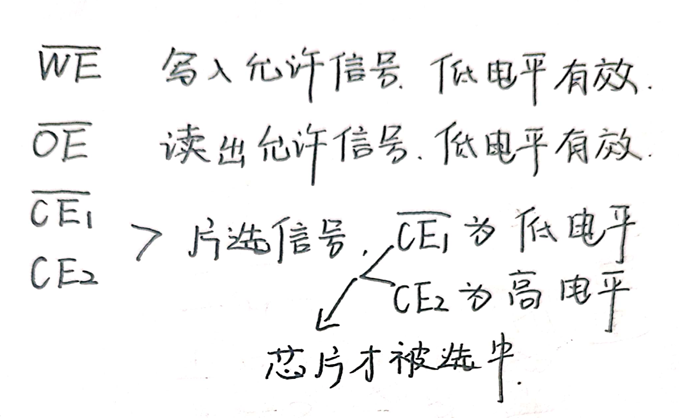 W̅E̅ 写入允许信号. 低电平有效.
O̅E̅ 读出允许信号. 低电平有效.
C̅E̅₁
CE₂ > 片选信号, C̅E̅₁为低电平
CE₂为高电平
芯片才被选中.